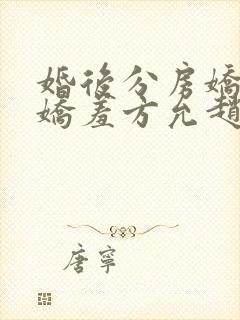 婚後分房嬌
嬌羞方允趙
唐寧